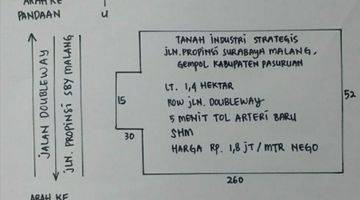 ARAH KE
PANDAAN
U
JALAN DOUBLEWAY
JLN. PROPINSI SBY MALANG
TANAH INDUSTRI STRATEGIS
JLN. PROPINSI SURABAYA MALANG,
GEMPOL KABUPATEN PASURUAN
LT. 1,4 HEKTAR
ROW JLN. DOUBLEWAY
5 MENIT TOL ARTERI BARU
SHM
HARGA RP. 1,8 JT / MTR NEGO
15
30
52
260
ARAH KE